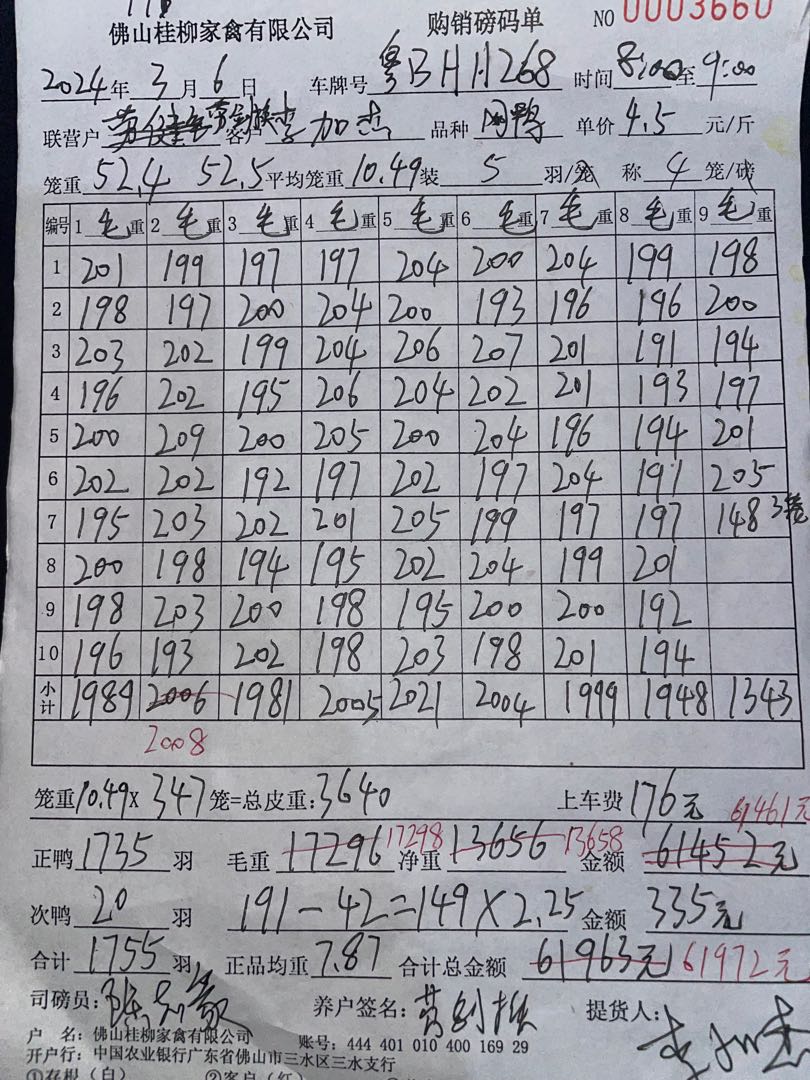 佛山桂柳家禽有限公司 购销磅码单 NO 0003660
2024年 3月 6日 车牌号 粤BHH268 时间 8:00至9:00
联营户 客户 李加杰 品种 单价 4.5 元/斤
笼重 52.4 52.5 平均笼重 10.49 装 5 羽/笼 称 4 笼/磅
编号 1 毛重 2 毛重 3 毛重 4 毛重 5 毛重 6 毛重 7 毛重 8 毛重 9 毛重
1 201 199 197 197 204 200 204 199 198
2 198 197 200 204 200 193 196 196 200
3 203 202 199 204 206 207 201 191 194
4 196 202 195 206 204 202 201 193 197
5 200 209 200 205 200 204 196 194 201
6 202 202 192 197 202 197 204 191 205
7 195 203 202 201 205 199 197 197 148 3笼
8 200 198 194 195 202 204 199 201
9 198 203 200 198 195 200 200 192
10 196 193 202 198 203 198 201 194
小计 1989 2006 1981 2005 2021 2004 1999 1948 1343
2008
笼重 10.49 X 347 笼=总皮重: 3640 上车费 176元 61461元
正鸭 1735 羽 毛重 17296 17298 净重 13656 13658 金额 61452元
次鸭 20 羽 191-42=149X2.25 金额 335元
合计 1755 羽 正品均重 7.87 合计总金额 61963元 61972元
司磅员: 养户签名: 提货人: 李加杰
户 名: 佛山桂柳家禽有限公司 账号: 444 401 010 400 169 29
开户行: 中国农业银行广东省佛山市三水区三水支行
①存根(白) ②客户(红)